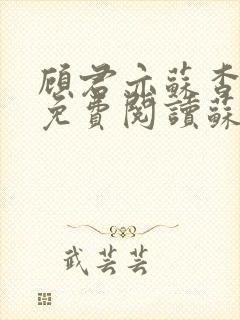 顾君亦蘇杳
免費閱讀蘇
武芸芸